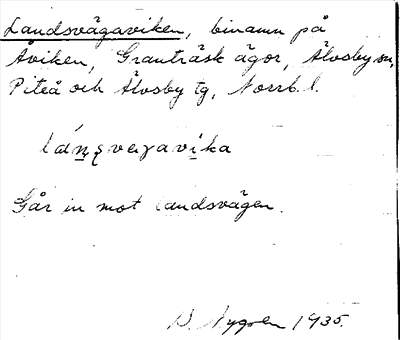 Landsvägaviken, binamn på
Åviken, Granträsk ägor, Älvsby sn,
Piteå och Älvsby tg, Norrb. l.
Går in mot landsvägen.
D. Nygren 1935.